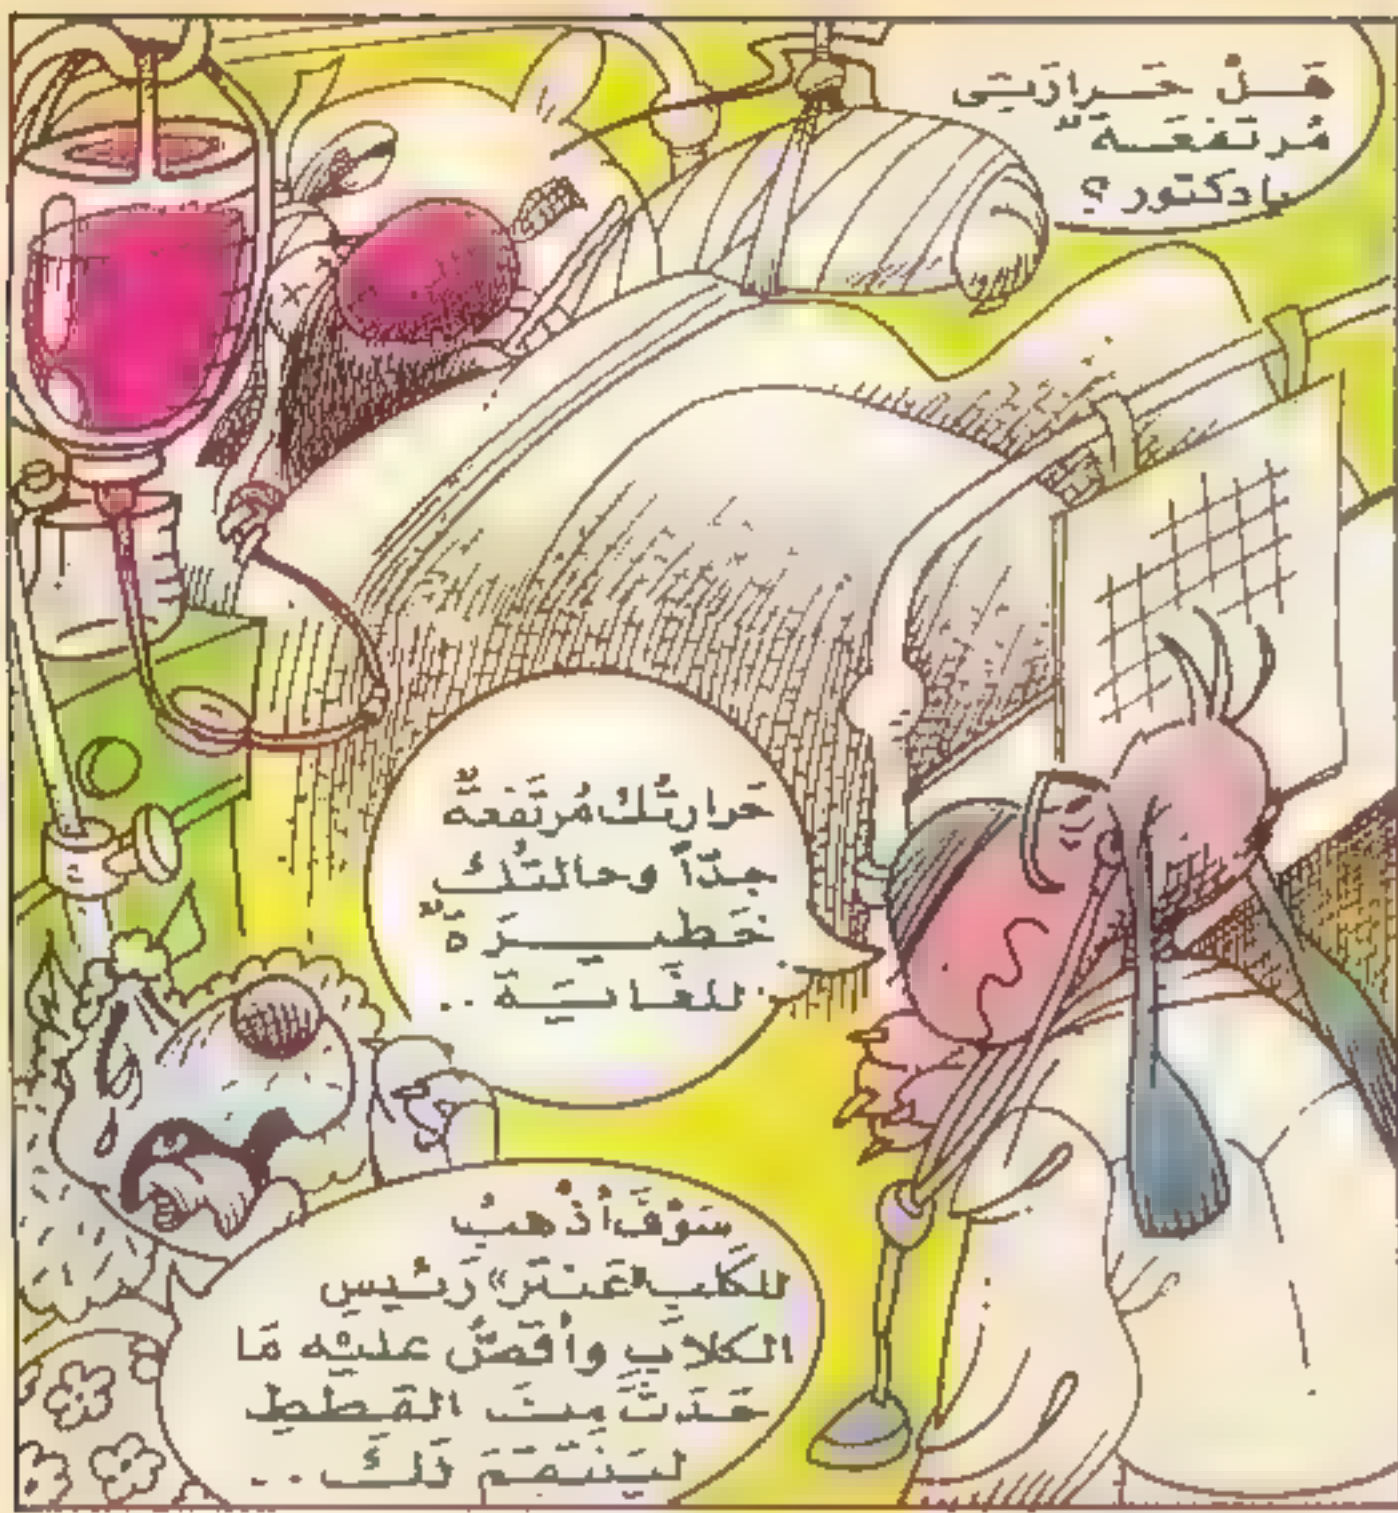 هَلْ حَـرارَتِى
مُرتَفعَـة ٌ
يادكتور ؟
حَرارتُكَ مُرتَفعةٌ
جِدّاً وحالتُكَ
خَطِيـرَةٌ
للغَايَـةَ ..
سَوْفَ أذْهبُ
للكَلبِ «عَنتَر» رَئيسِ
الكلابِ وأقصُّ عليْه مَا
حَدَثَ مِنَ القِطَطِ
ليَنتَقمَ لَكَ ..